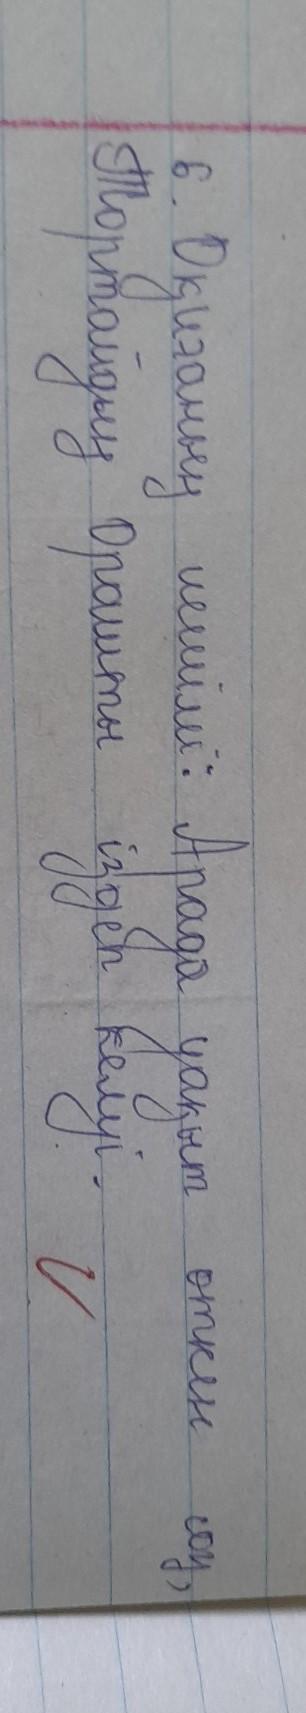 6. Оқиғаның шешімі: Арада уақыт өткен соң,
Тортайдың Орашты іздеп келуі.